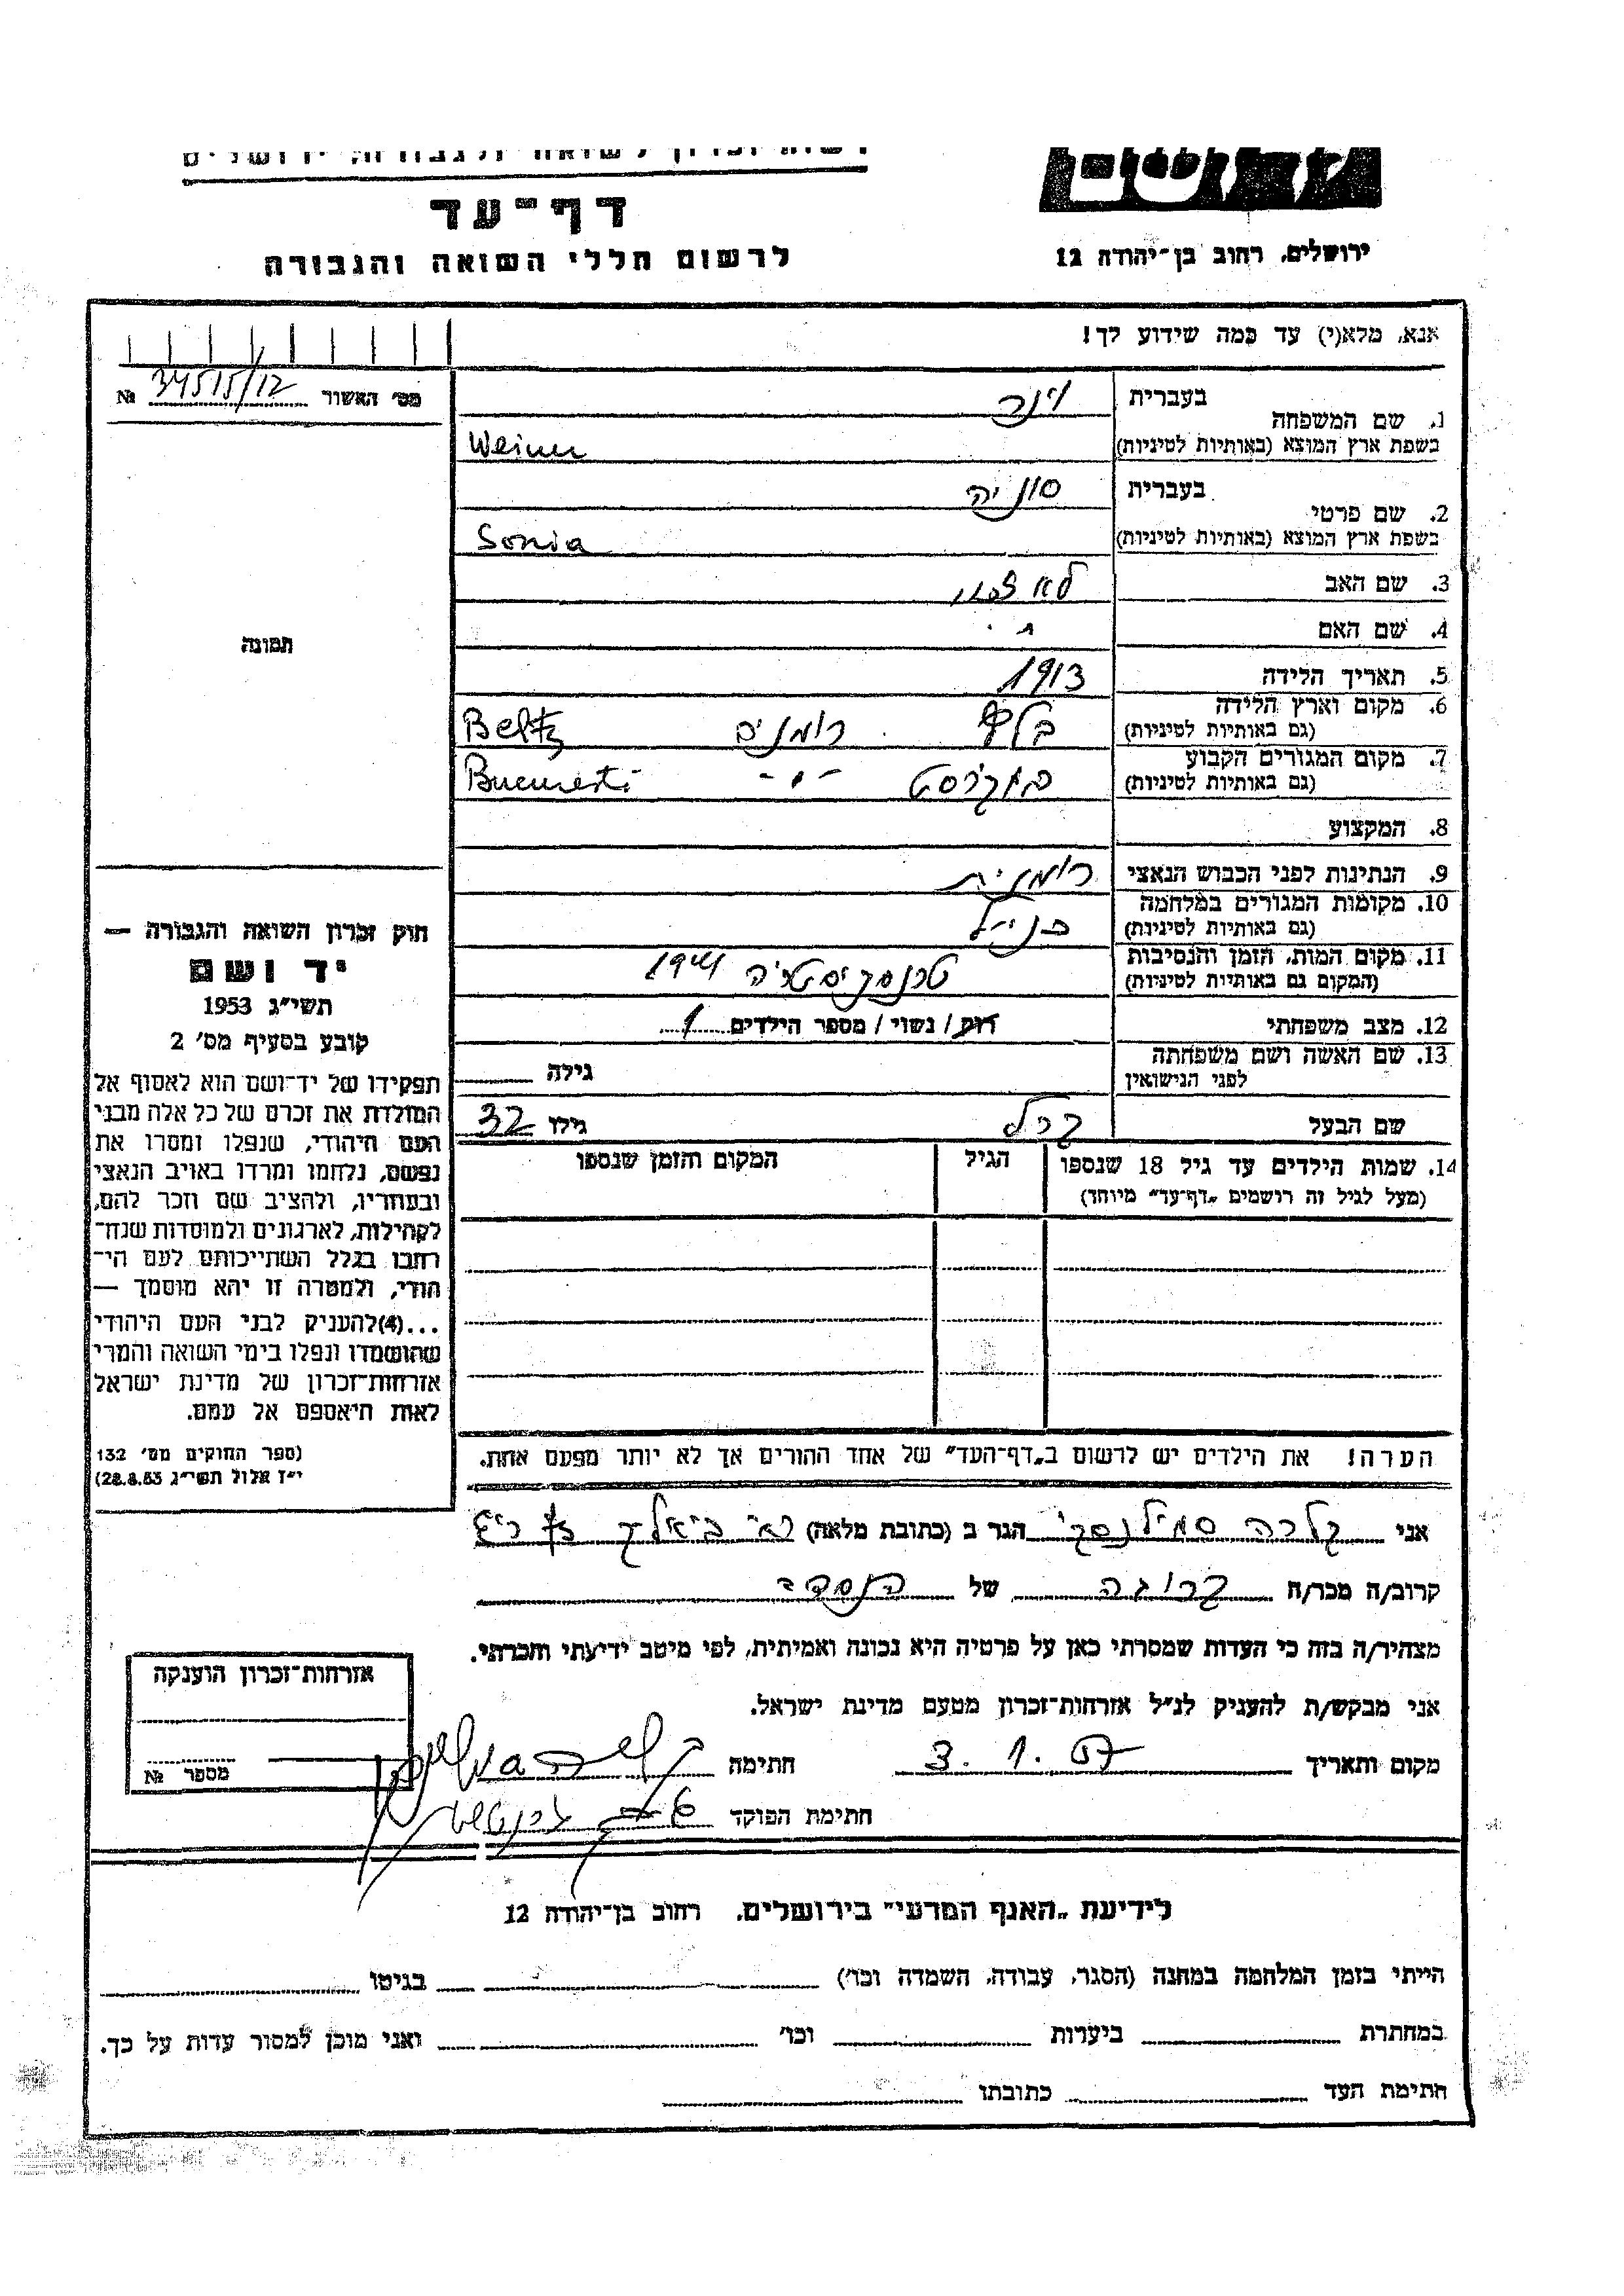 רשות זכרון לשואה ולגבורה, ירושלים
דף־עד
לרשום חללי השואה והגבורה
ושם
ירושלים, רחוב בן־יהודה 12
אנא, מלא(י) עד כמה שידוע לך!
מס׳ האשור 34515/12 №
1. שם המשפחה
בעברית וינר
בשפת ארץ המוצא (באותיות לטיניות) Weiner
2. שם פרטי
בעברית סוניה
בשפת ארץ המוצא (באותיות לטיניות) Sonia
3. שם האב לא
4. שם האם
5. תאריך הלידה 1913
6. מקום וארץ הלידה
(גם באותיות לטיניות) בלץ רומנים Beltz
7. מקום המגורים הקבוע
(גם באותיות לטיניות) בוקרסט -"- Bucuresti
8. המקצוע
9. הנתינות לפני הכבוש הנאצי רומנית
10. מקומות המגורים במלחמה
(גם באותיות לטיניות) כנ״ל
11. מקום המות, הזמן והנסיבות
(המקום גם באותיות לטיניות) טרנסניסטריה 1941
12. מצב משפחתי רוק/ נשוי/ מספר הילדים 1
13. שם האשה ושם משפחתה
לפני הנישואין
גילה
שם הבעל קרל גילו 32
14. שמות הילדים עד גיל 18 שנספו
(מעל לגיל זה רושמים „דף־עד״ מיוחד)
הגיל
המקום והזמן שנספו
תמונה
חוק זכרון השואה והגבורה —
יד ושם
תשי״ג 1953
קובע בסעיף מס׳ 2
תפקידו של יד־ושם הוא לאסוף אל
המולדת את זכרם של כל אלה מבני
העם היהודי, שנפלו ומסרו את
נפשם, נלחמו ומרדו באויב הנאצי
ובעוזריו, ולהציב שם וזכר להם,
לקהילות, לארגונים ולמוסדות שנח־
רבו בגלל השתייכותם לעם הי־
הודי, ולמטרה זו יהא מוסמך —
...(4)להעניק לבני העם היהודי
שהושמדו ונפלו בימי השואה והמרי
אזרחות־זכרון של מדינת ישראל
לאות היאספם אל עמם.
(ספר החוקים מס׳ 132
י״ז אלול תשי״ג 28.8.53)
הערה! את הילדים יש לרשום ב„דף־העד״ של אחד ההורים אך לא יותר מפעם אחת.
אני קלרה סמילנסקי הגר ב (כתובת מלאה) ביאליק
קרוב/ה מכר/ה קרובה של הנספה
מצהיר/ה בזה כי העדות שמסרתי כאן על פרטיה היא נכונה ואמיתית, לפי מיטב ידיעתי והכרתי.
אני מבקש/ת להעניק לנ״ל אזרחות־זכרון מטעם מדינת ישראל.
מקום ותאריך 3. 1. 57 חתימה
חתימת הפוקד
אזרחות־זכרון הוענקה
מספר №
לידיעת „האגף המדעי״ בירושלים, רחוב בן־יהודה 12
הייתי בזמן המלחמה במחנה (הסגר, עבודה, השמדה וכו׳) בגיטו
במחתרת ביערות וכו׳ ואני מוכן למסור עדות על כך.
חתימת העד כתובתו